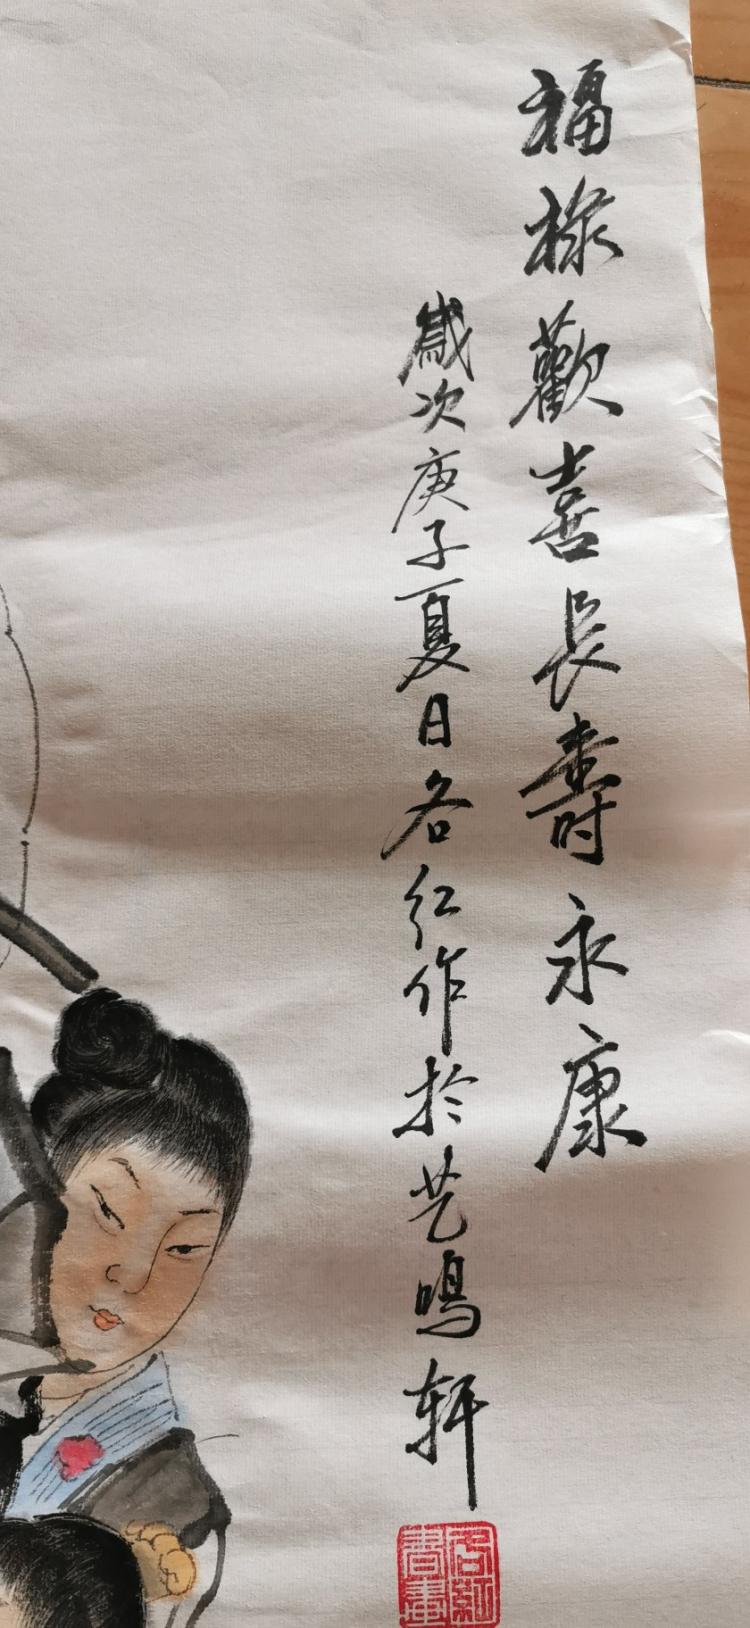 福祿歡喜長壽永康
歲次庚子夏日名红作於艺鳴轩
名紅書畫